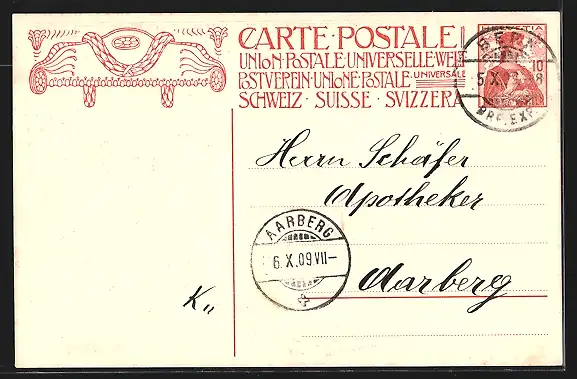 CARTE·POSTALE
HELVETIA
UNION·POSTALE·UNIVERSELLE·WELT
POSTVEREIN·UNIONE·POSTALE· UNIVERSALE
SCHWEIZ · SUISSE · SVIZZERA
10
BERN
5.X.
BRF.EXP.
Herrn Schäfer
Apotheker
AARBERG
6.X.09 VII–
Aarberg
K„